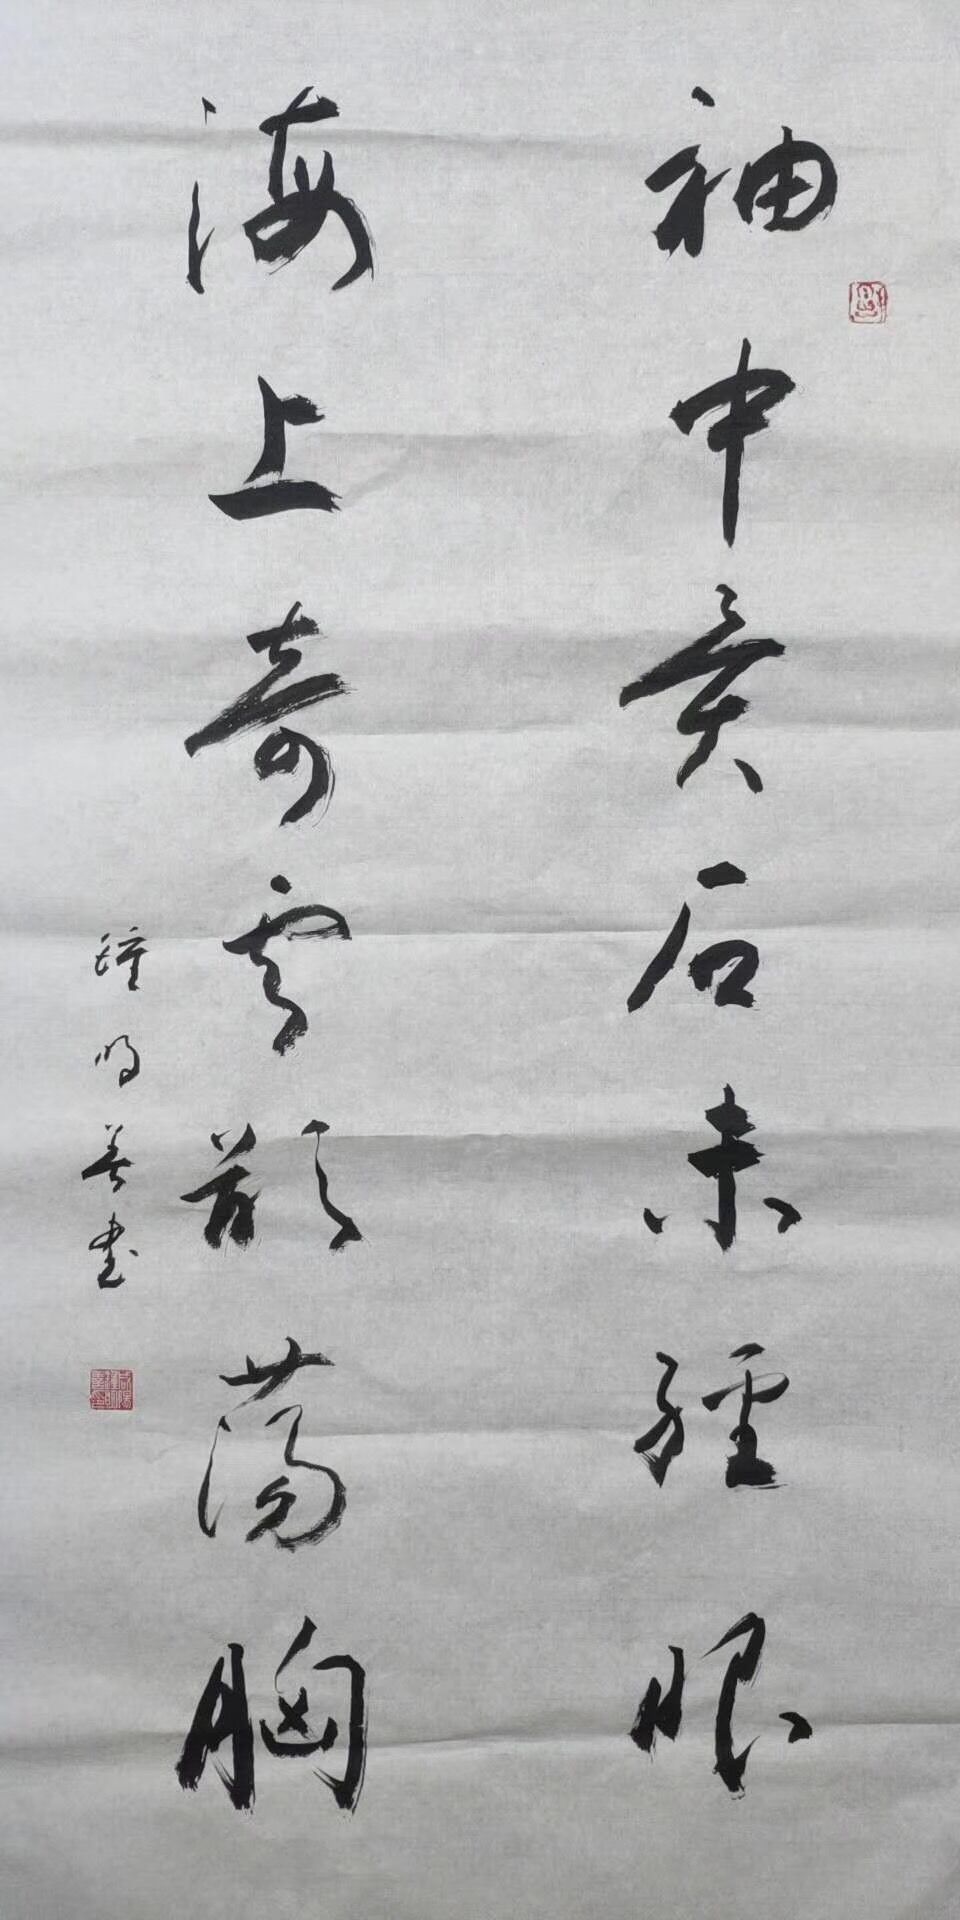 袖中异石未经眼
海上奇云欲荡胸
钟鸣善书